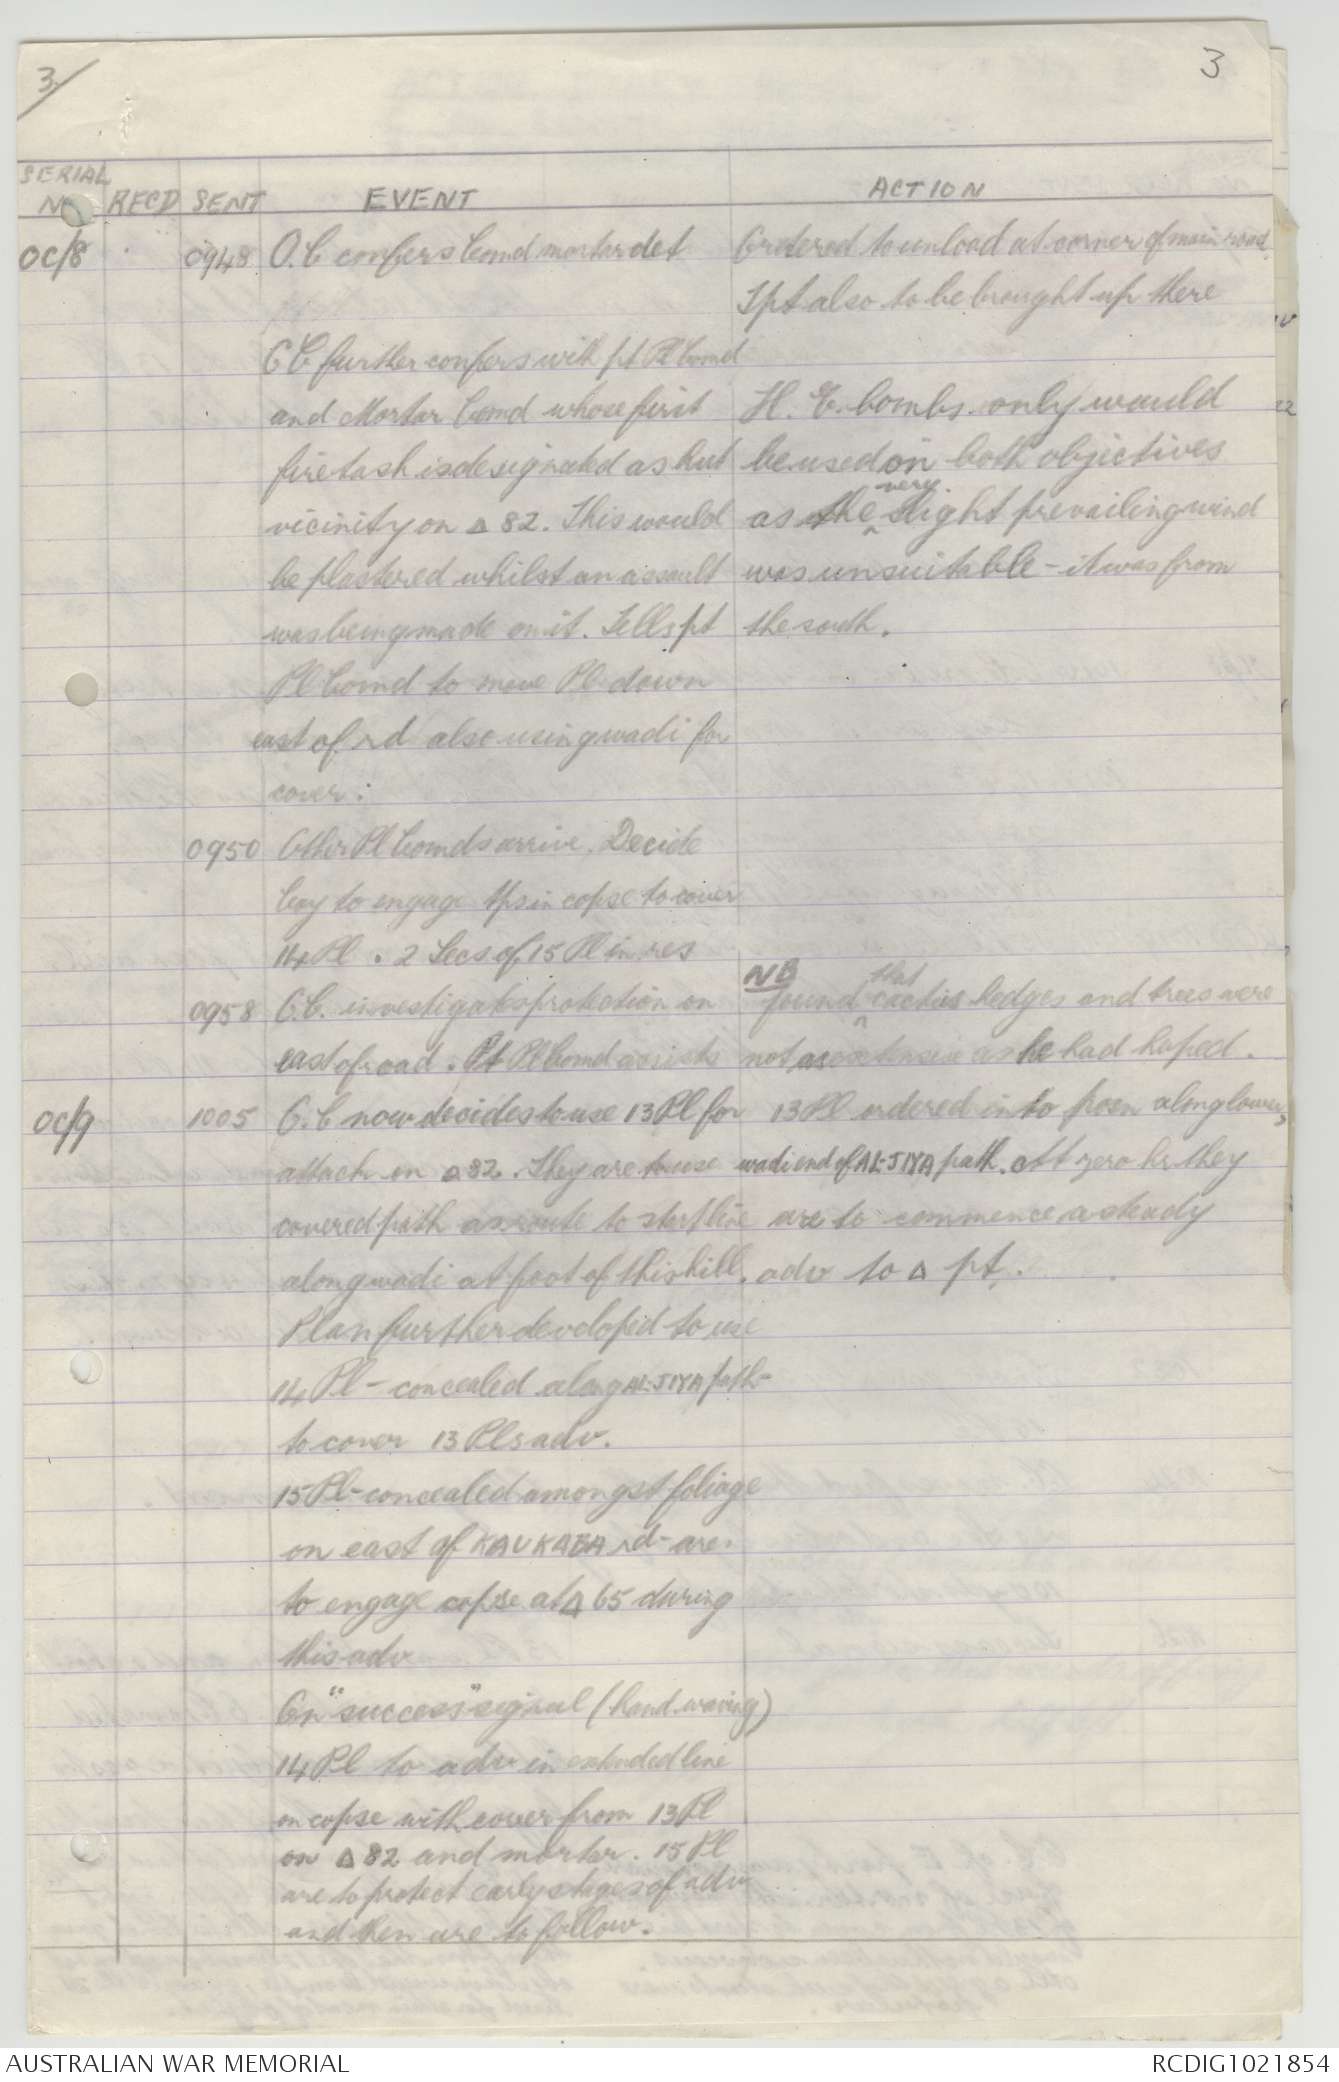 3/
3
SERIAL
No RECD SENT EVENT ACTION
OC/8 0948 O.C confers Comd mortar det Ordered to unload at corner of main road.
Tpt also to be brought up there
O C further confers with pt Pl Comd
and Mortar Comd whose first H. E. bombs only would
fire task is designated as hut be used on both objectives
vicinity on Δ 82. This would as the very slight prevailing wind
be plastered whilst an assault was unsuitable - it was from
was being made on it. Tells pt the south.
Pl Comd to move Pl down
east of rd also using wadi for
cover:
0950 Other Pl Comds arrive. Decide
Coy to engage tps in copse to cover
14 Pl. 2 Secs of 15 Pl in res
0958 O.C. investigates protection on NB found that cactus hedges and trees were
east of road. Pt Pl Comd assists not as extensive as he had hoped.
OC/9 1005 O.C now decides to use 13 Pl for 13 Pl ordered into posn along lower
attack on Δ 82. They are to use wadi end of AL-JIYA path. At zero hr they
covered path as route to start line are to commence a steady
along wadi at foot of this hill. adv to Δ pt.
Plan further developed to use
14 Pl - concealed along AL-JIYA path -
to cover 13 Pls adv.
15 Pl - concealed amongst foliage
on east of KAUKABA rd - are
to engage copse at Δ 65 during
this adv
On "success" signal (hand waving)
14 Pl to adv in extended line
on copse with cover from 13 Pl
on Δ 82 and mortar. 15 Pl
are to protect early stages of adv
and then are to follow.
AUSTRALIAN WAR MEMORIAL RCDIG1021854